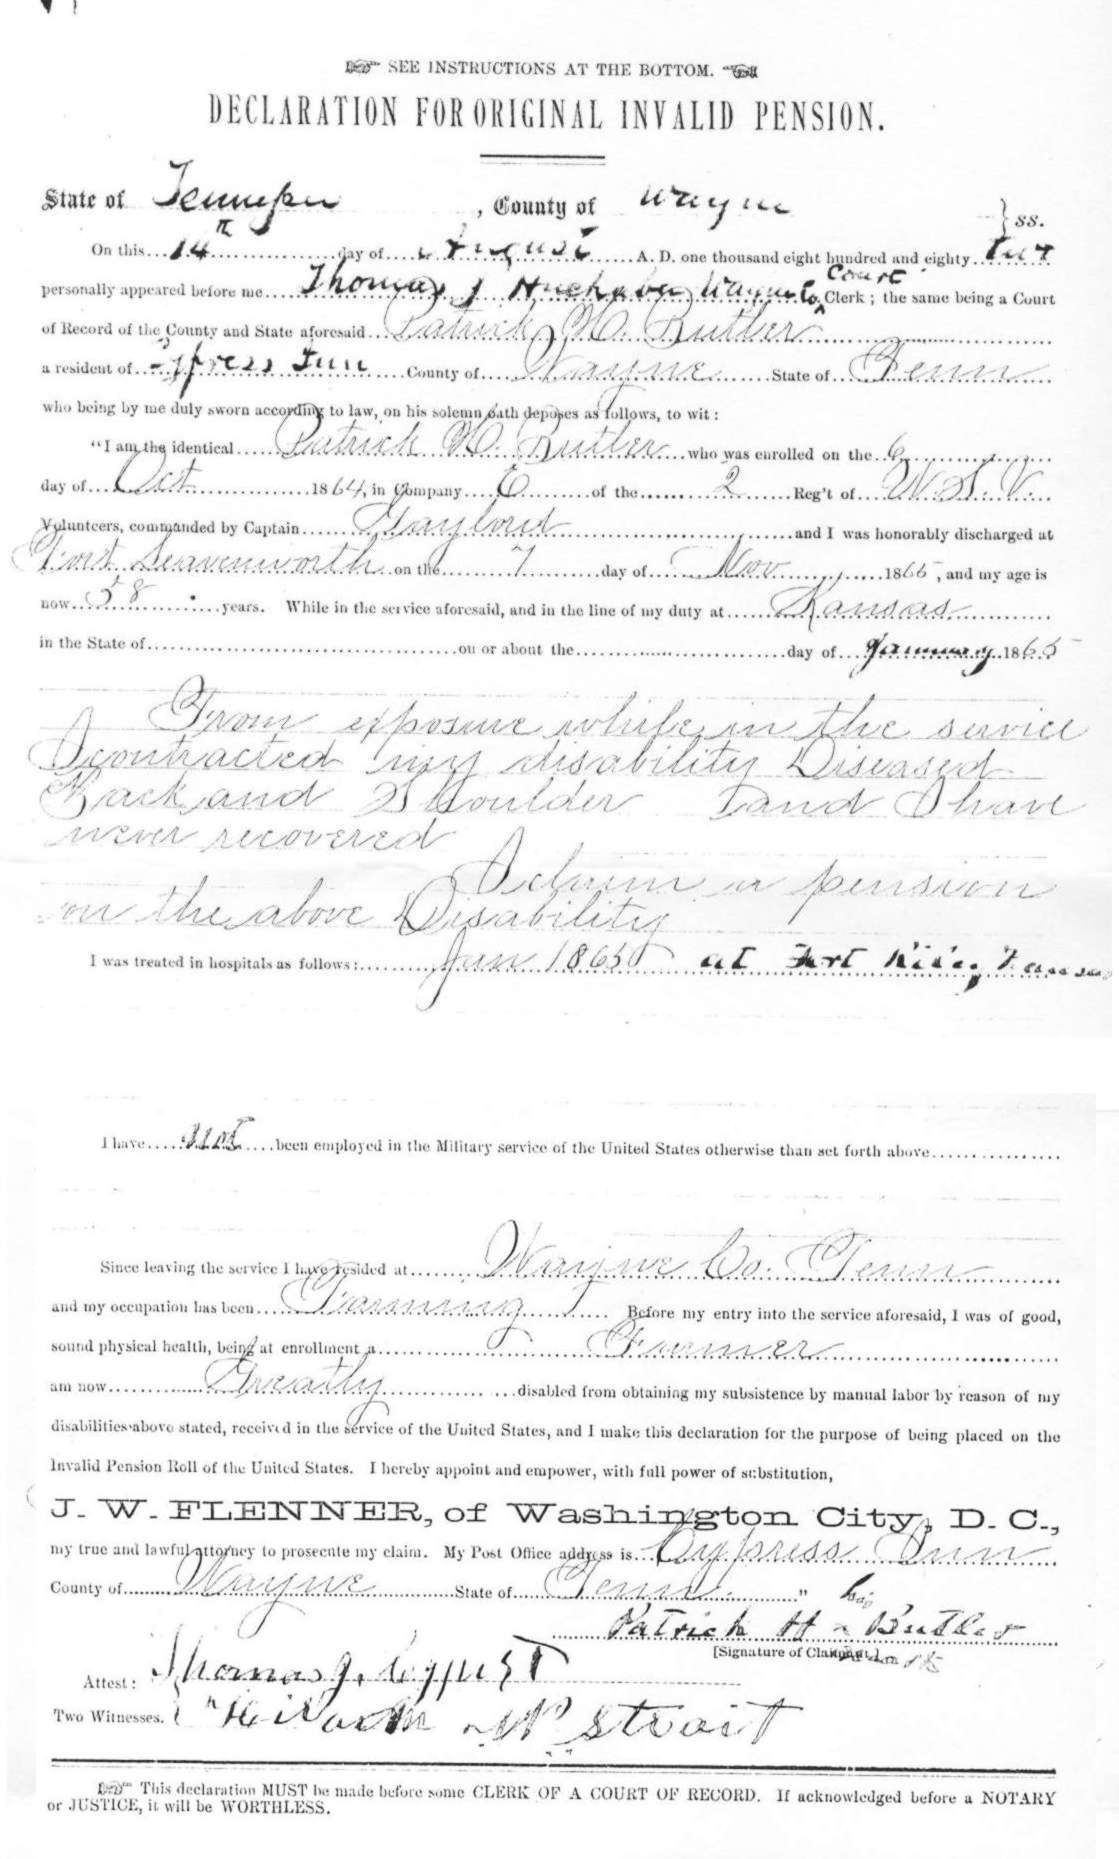 SEE INSTRUCTIONS AT THE BOTTOM.
DECLARATION FOR ORIGINAL INVALID PENSION.
State of Tennessee, County of Wayne } ss.
On this 14th day of August A. D. one thousand eight hundred and eighty
personally appeared before me Thomas J Huckaba, Wayne Co Court Clerk; the same being a Court
of Record of the County and State aforesaid Patrick H. Butler
a resident of Cypress Inn County of Wayne State of Tenn
who being by me duly sworn according to law, on his solemn oath deposes as follows, to wit:
"I am the identical Patrick H. Butler who was enrolled on the 6
day of Oct 1864, in Company of the 2 Reg't of U. S. V.
Volunteers, commanded by Captain Gaylord and I was honorably discharged at
Fort Leavenworth on the 7 day of Nov 1865, and my age is
now 58 years. While in the service aforesaid, and in the line of my duty at Kansas
in the State of on or about the day of January 1865
From exposure while in the service
I contracted my disability Diseased
Back and Shoulder and I have
never recovered
I claim a pension
on the above Disability
I was treated in hospitals as follows: Jan 1865 at Fort Riley, Kansas
I have not been employed in the Military service of the United States otherwise than set forth above
Since leaving the service I have resided at Wayne Co. Tenn
and my occupation has been Farming Before my entry into the service aforesaid, I was of good,
sound physical health, being at enrollment a Farmer
am now Greatly disabled from obtaining my subsistence by manual labor by reason of my
disabilities above stated, received in the service of the United States, and I make this declaration for the purpose of being placed on the
Invalid Pension Roll of the United States. I hereby appoint and empower, with full power of substitution,
J. W. FLENNER, of Washington City, D. C.,
my true and lawful attorney to prosecute my claim. My Post Office address is Cypress Inn
County of Wayne State of Tenn. "
his
Patrick H x Butler
[Signature of Claimant.] mark
Attest: Thomas J. Cypert
Two Witnesses. Strait
This declaration MUST be made before some CLERK OF A COURT OF RECORD. If acknowledged before a NOTARY
or JUSTICE, it will be WORTHLESS.